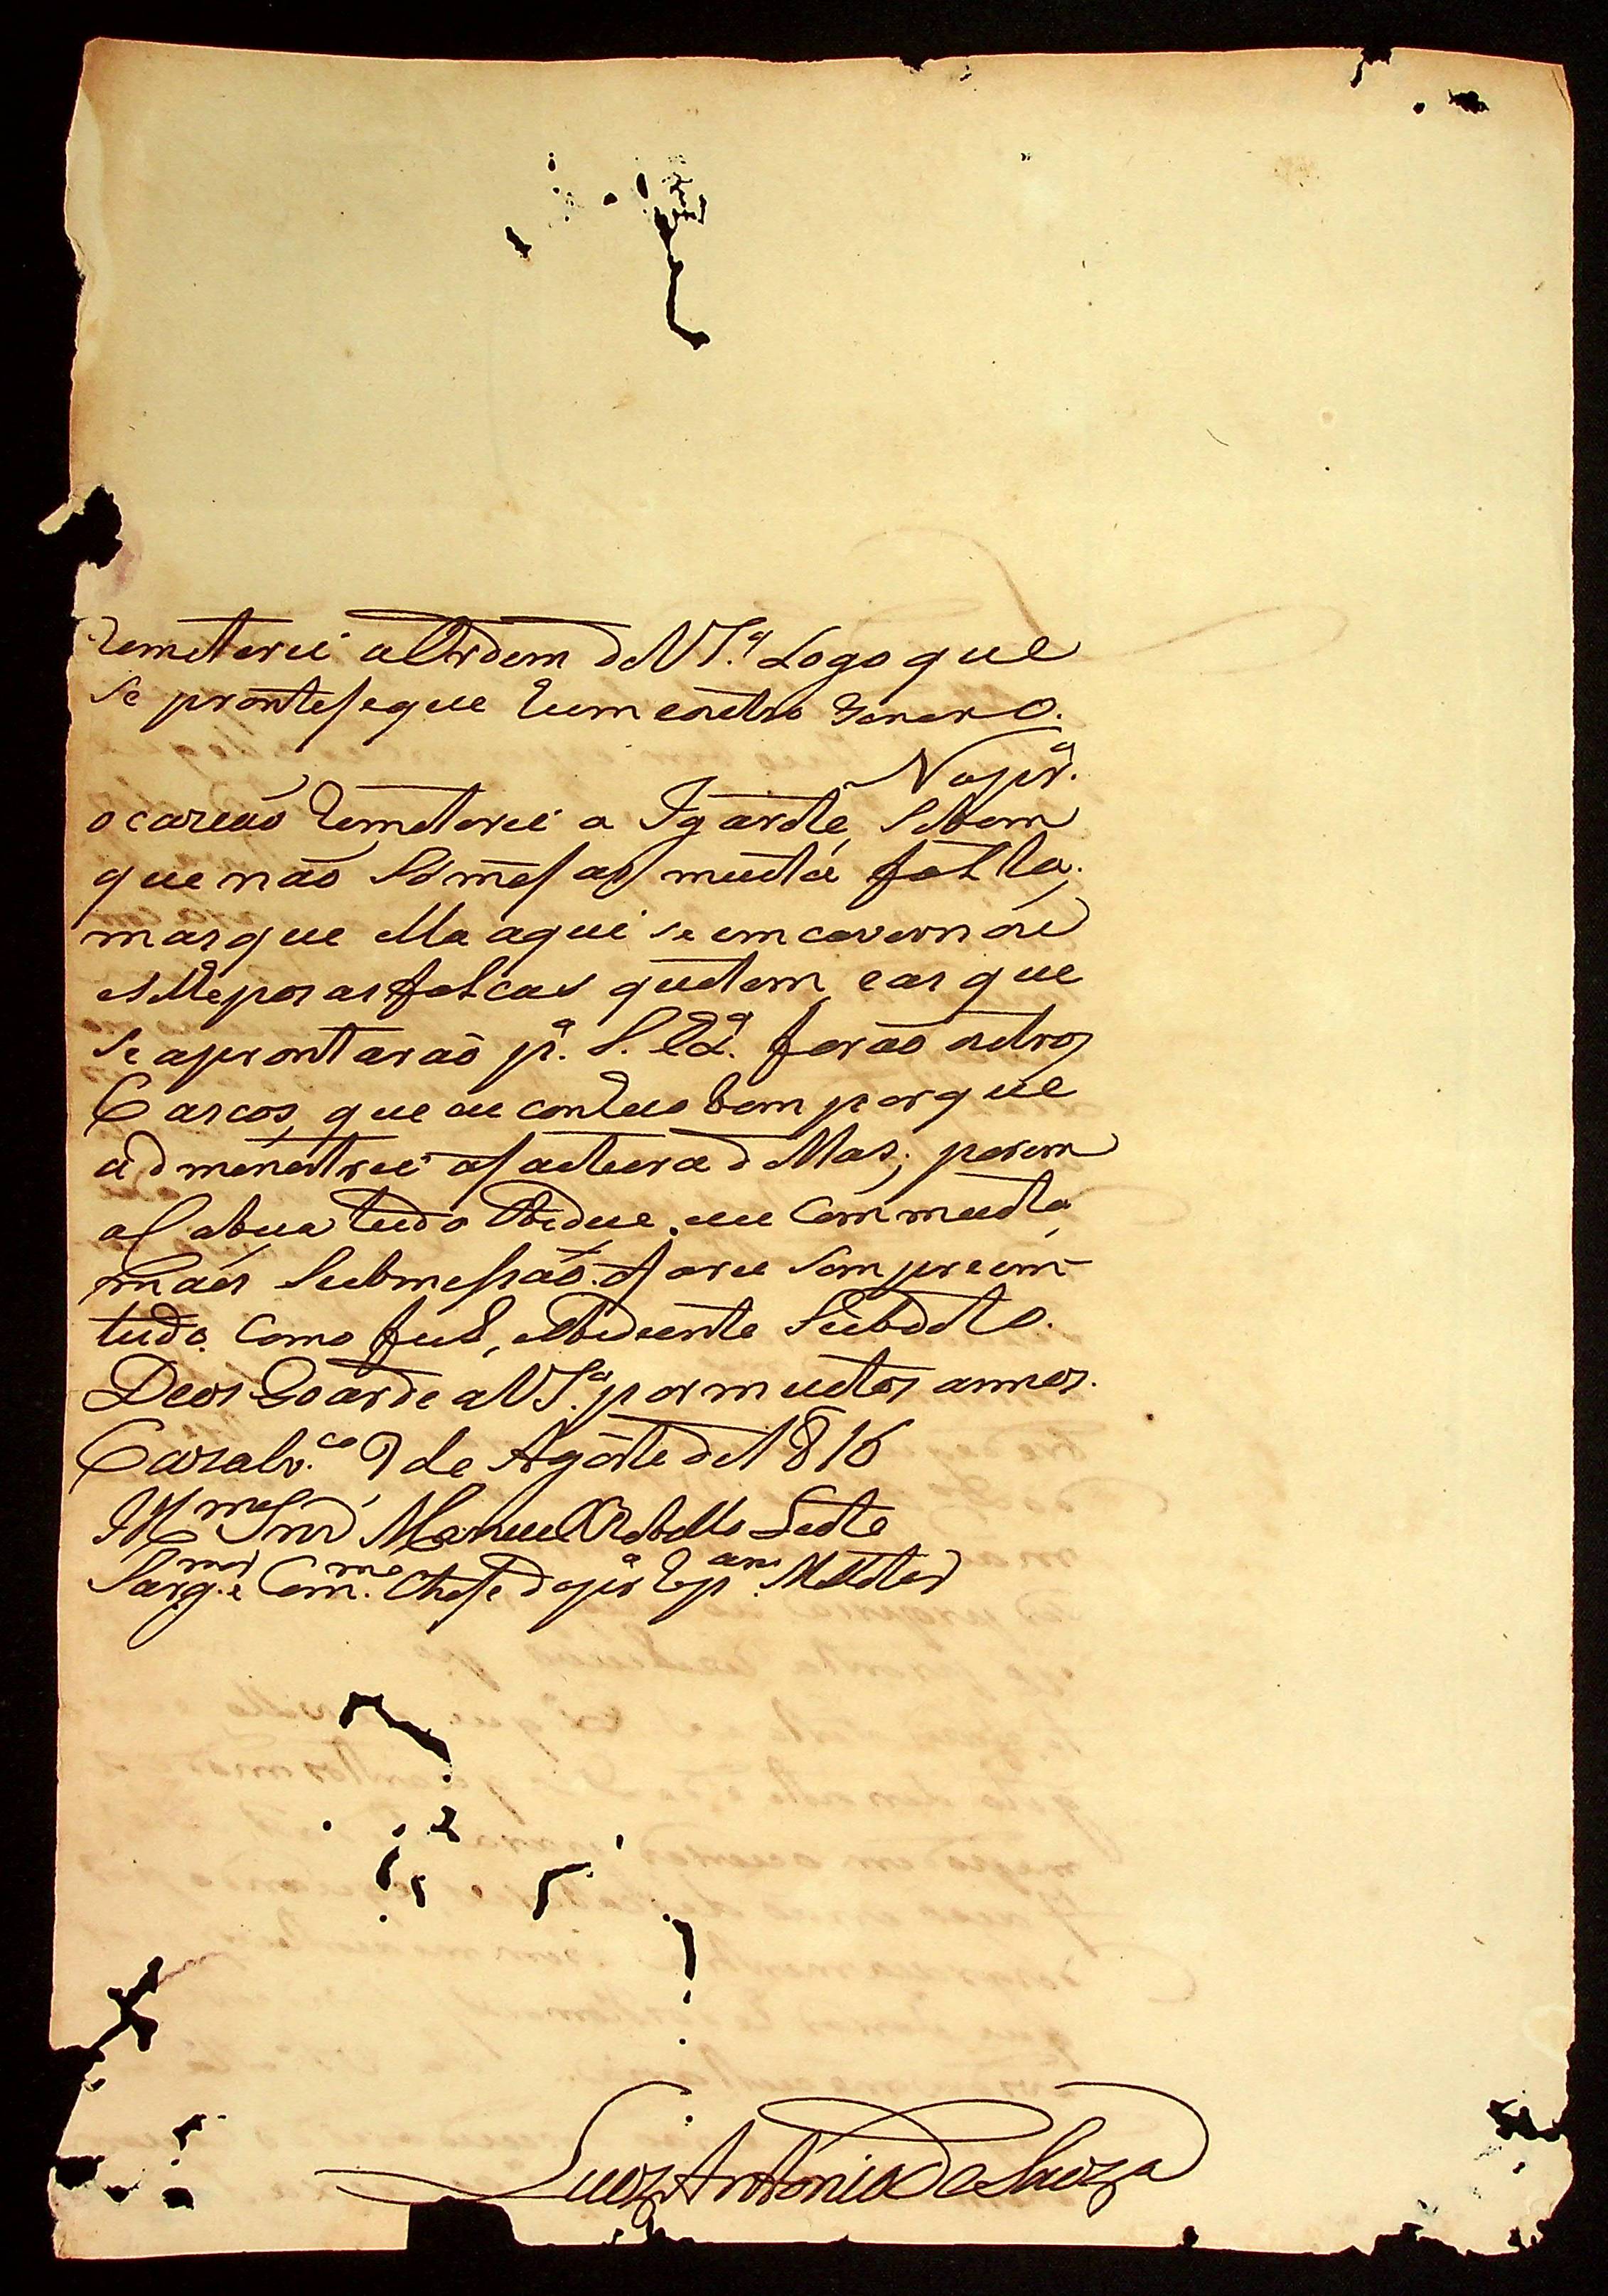 Remeterei a Ordem de VS.ª Logo que
se prontefeque hum e outro genero.
Na pr.ª
ocazião Remeterei a Igarité, Sebem
que não Só mefas muita falta,
mas que ella aqui se emcavernou
e elle por as falcas que tem, e as que
se aprontarão p.ª S. L.ª forão outros
Barcos, que eu conheso bem porque
admenestrei afactura dellas; porem
al abua tudo Obedice. eu Com muita
mais Submessão. farei Sempre em
tudo. Como fiel, obidiente Subdito.
Deos Goarde a VS.ª por muitos annos.
Cazalv.co 9 de Agosto de 1816
Ill.mo Snr' Manuel Rebello Leite
Sarg.mor e Com.me Chefe da pr.ª Rep.am Militar
Luis Antonio de Souza